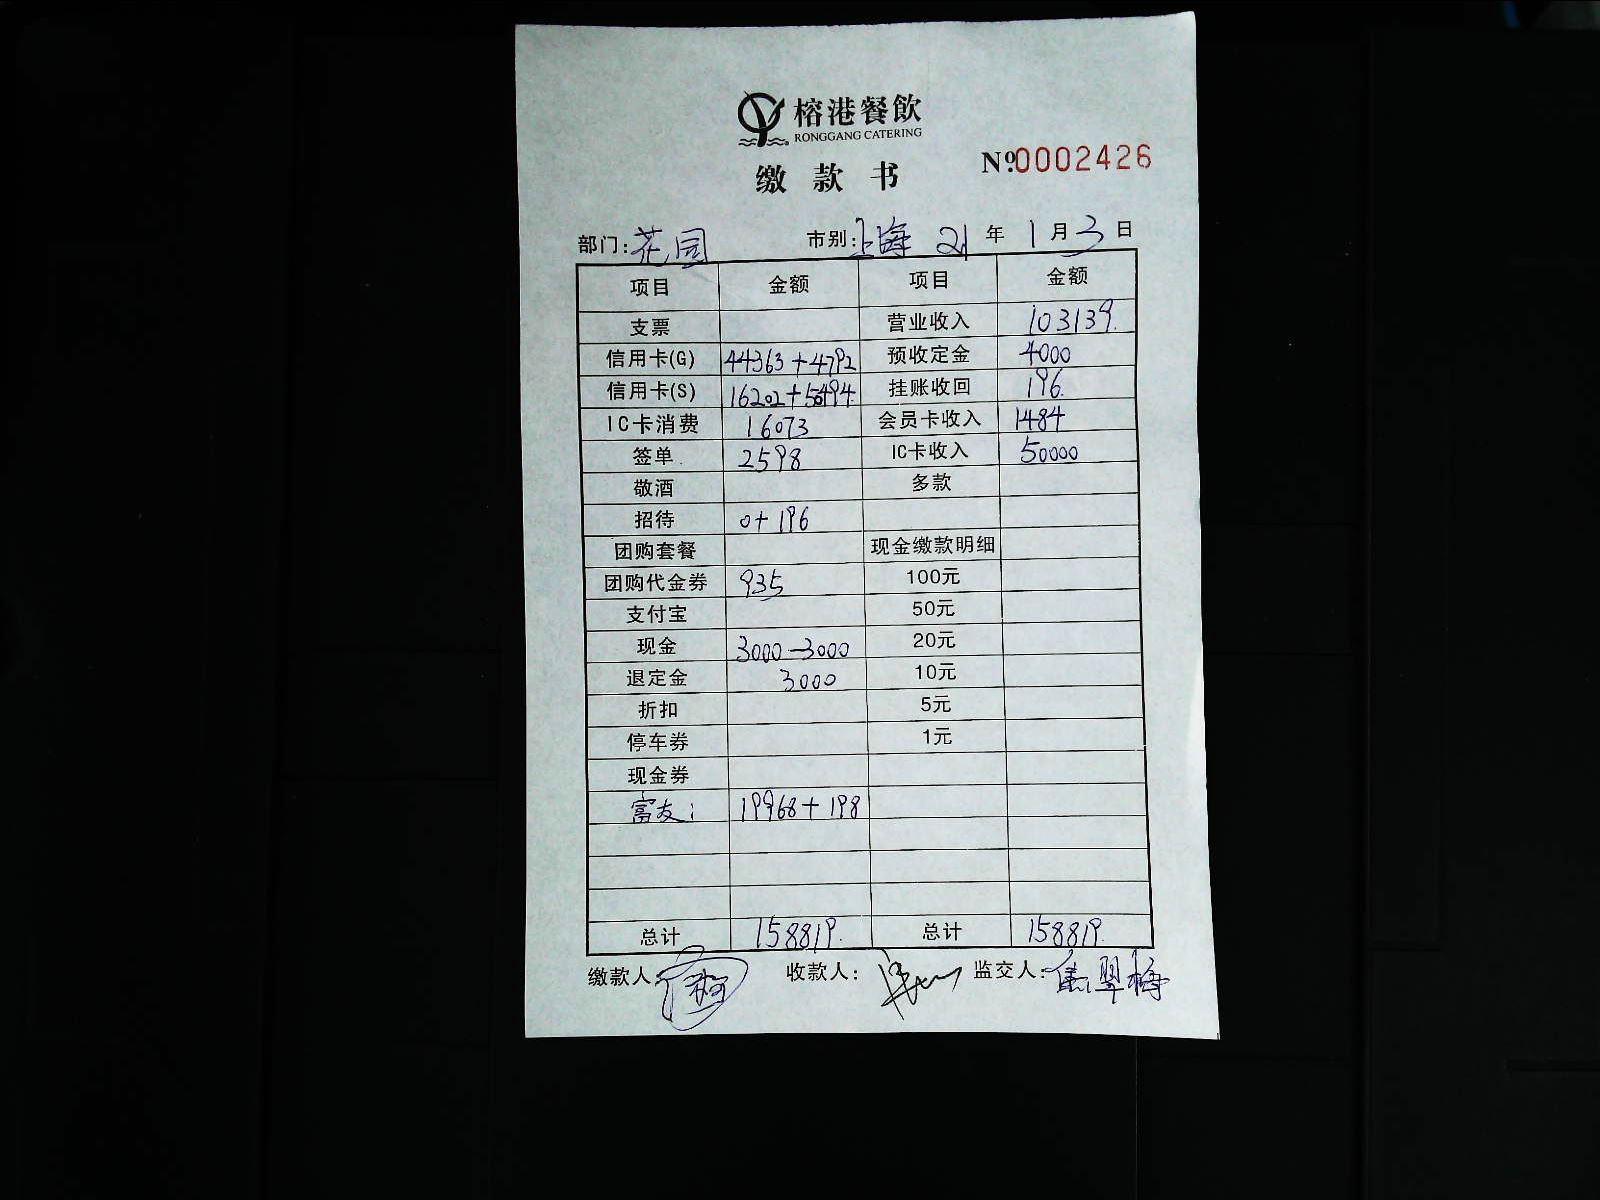 榕港餐飲
RONGGANG CATERING
缴款书 №0002426
部门:花园 市别:上海 21年1月3日
项目 金额 项目 金额
支票 营业收入 103139.
信用卡(G) 44363+4792 预收定金 4000
信用卡(S) 16202+50494. 挂账收回 196.
IC卡消费 16073 会员卡收入 1484
签单 2598 IC卡收入 50000
敬酒 多款
招待 0+196
团购套餐 现金缴款明细
团购代金券 935 100元
支付宝 50元
现金 3000-3000 20元
退定金 3000 10元
折扣 5元
停车券 1元
现金券
富友: 19968+198
总计 158819. 总计 158819.
缴款人: 收款人: 监交人:焦翠梅